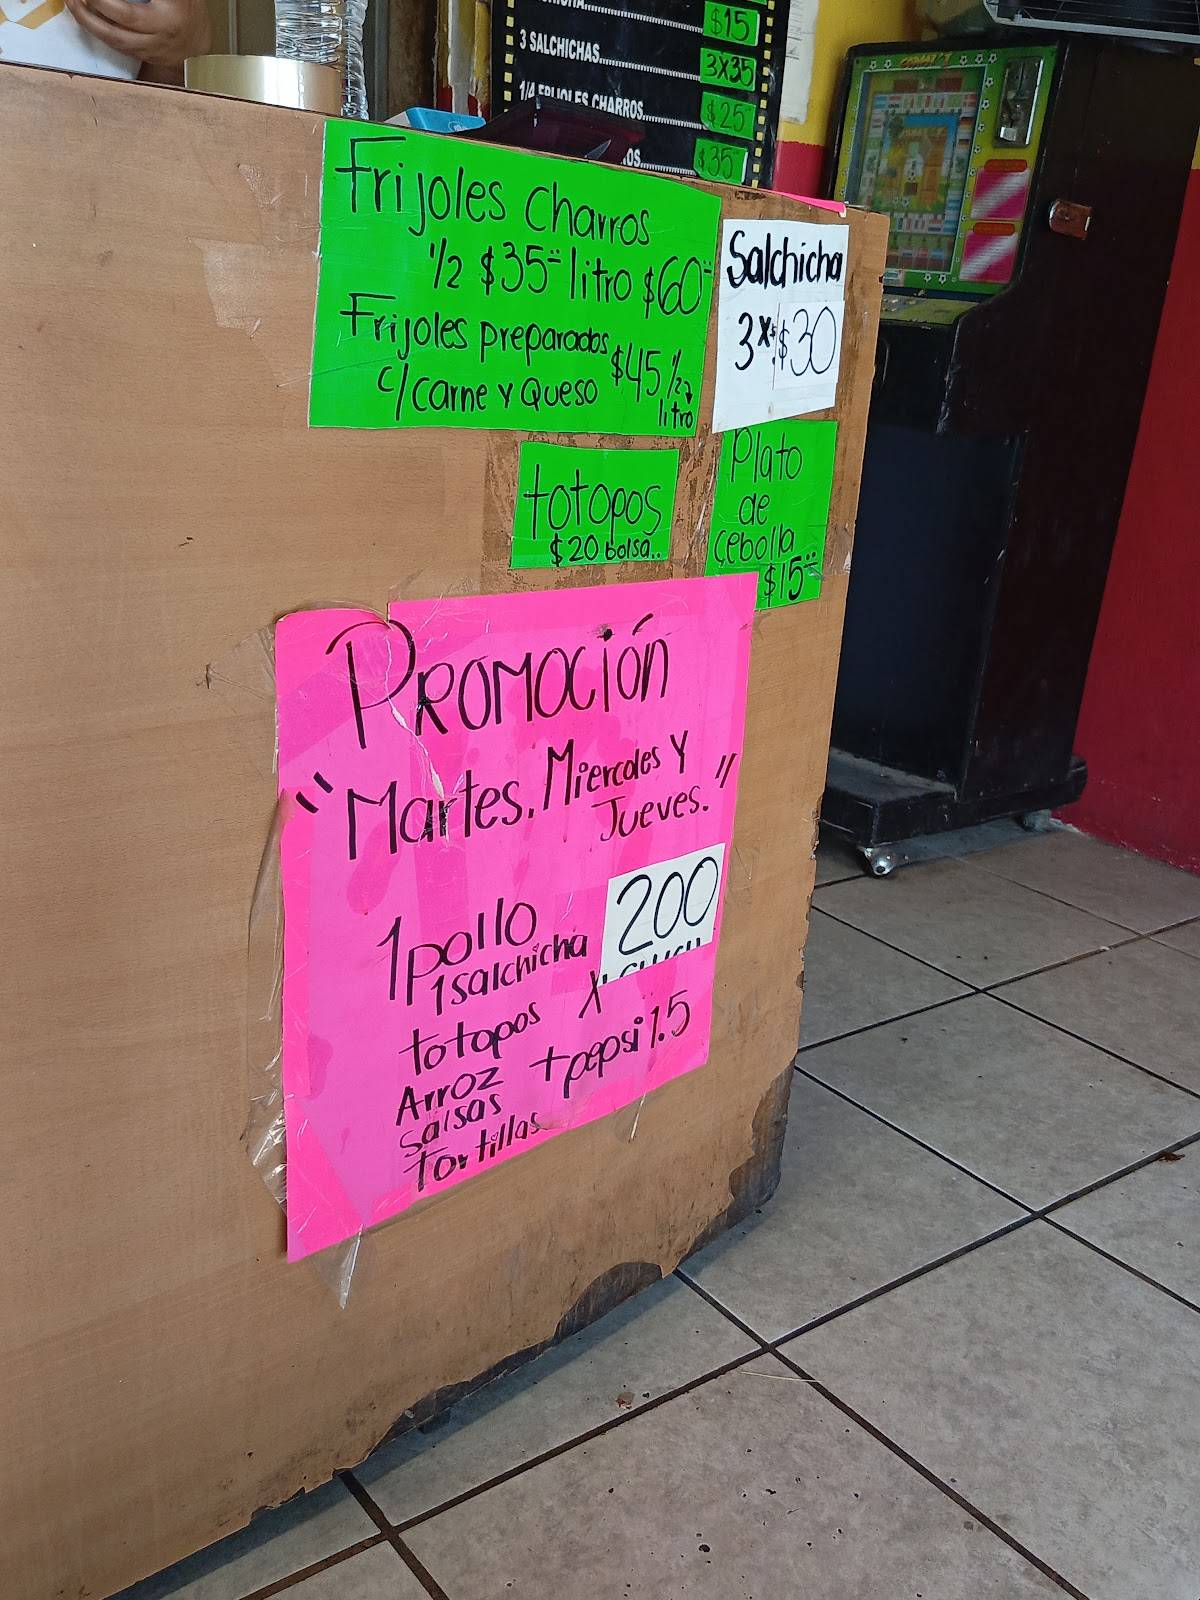 $15
3 SALCHICHAS............ 3X35
1/4 FRIJOLES CHARROS............ $25
$35
Frijoles Charros
1/2 $35 litro $60
Frijoles preparados
c/carne y queso $45 1/2
litro
Salchicha
3x $30
totopos
$20 bolsa..
Plato
de
cebolla
$15
Promoción
"Martes. Miercoles y
Jueves."
1 pollo
1 salchicha x 200
totopos
Arroz + pepsi 1.5
Salsas
Tortillas